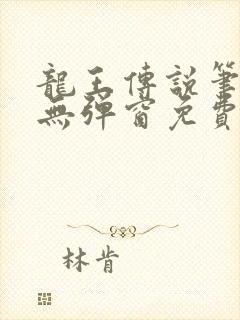 龍王傳說筆
無彈窗免費
林肯